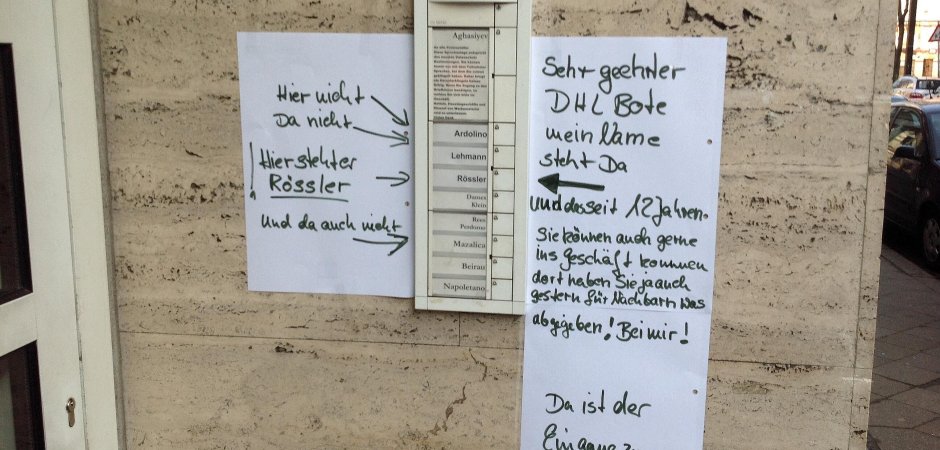 Hier nicht
Da nicht
! Hier steht er
Rössler
und da auch nicht
Aghasiyev
Ardolino
Lehmann
Rössler
Dames
Klein
Rees
Perdomo
Mazalica
Beirau
Napoletano
Sehr geehrter
DHL Bote
mein Name
steht Da
und das seit 12 Jahren.
Sie können auch gerne
ins Geschäft kommen
dort haben Sie ja auch
gestern für Nachbarn was
abgegeben! Bei mir!
Da ist der
Eingang